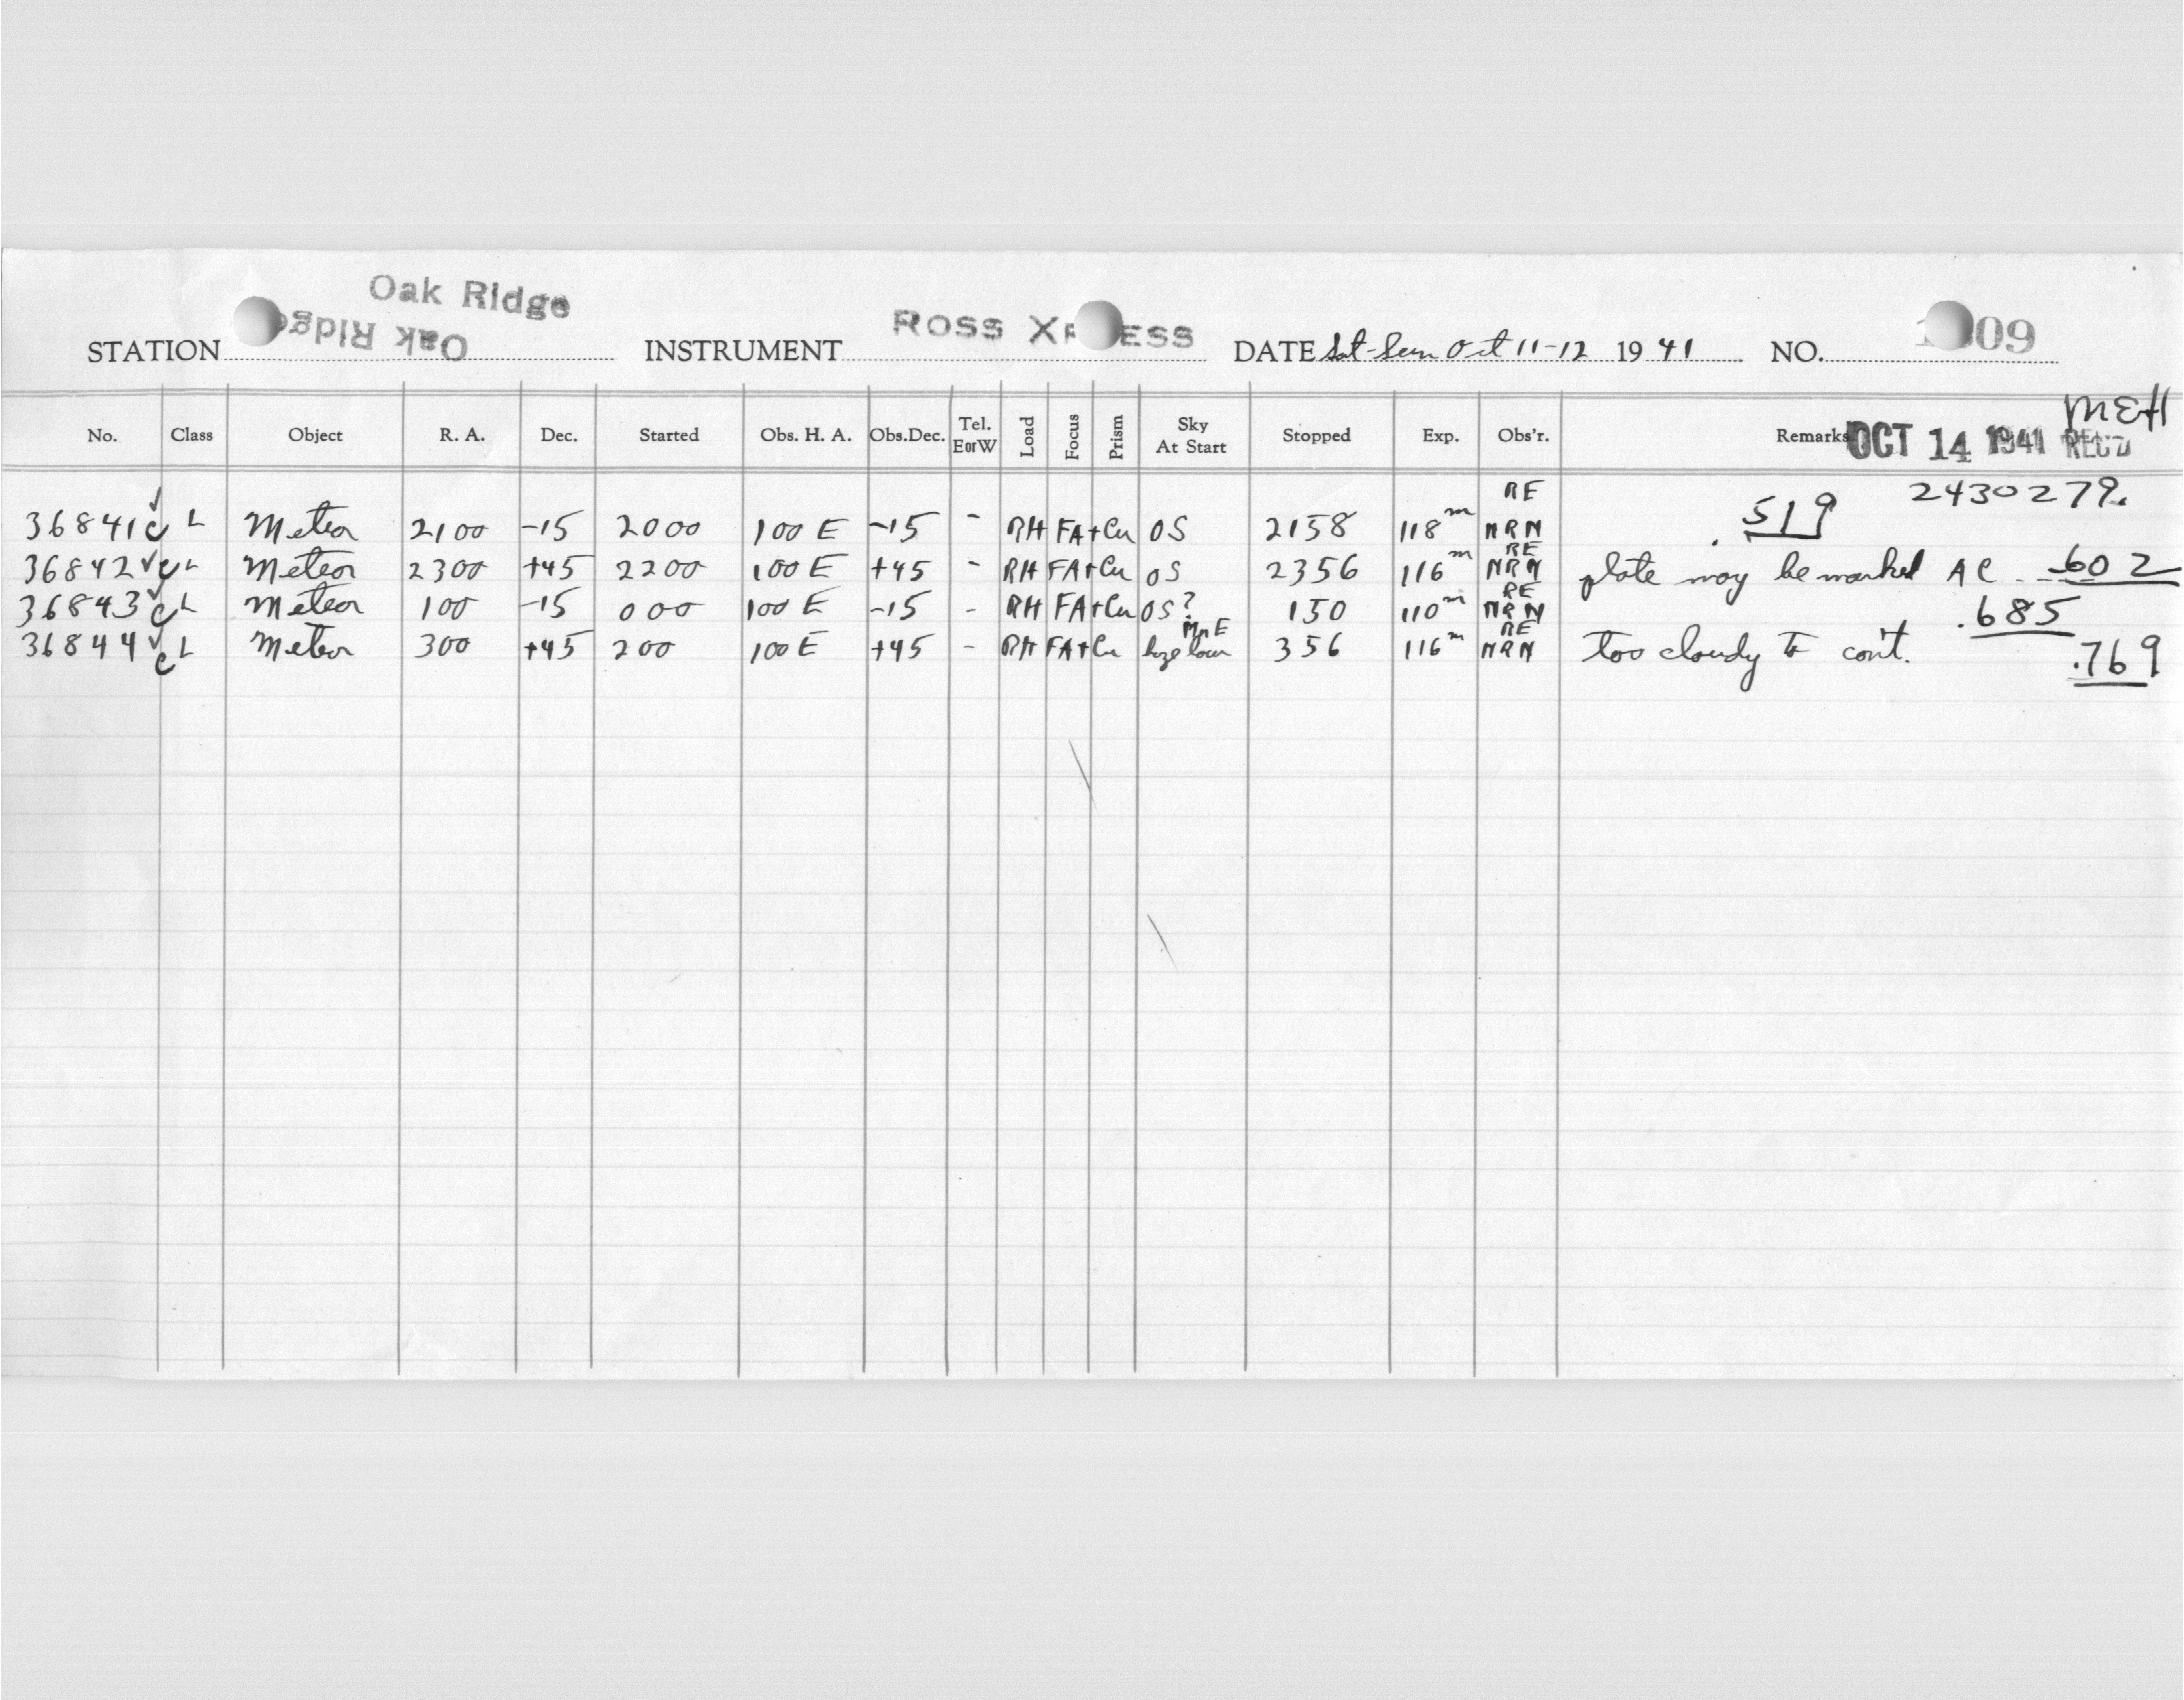 Oak Ridge
Oak Ridge
STATION INSTRUMENT ROSS DATE Sat-Sun Oct 11-12 19 41 NO. 09
MEH
No. Class Object R. A. Dec. Started Obs. H. A. Obs.Dec. Tel. EorW Load Focus Prism Sky At Start Stopped Exp. Obs'r. Remarks OCT 14 1941 REC'D
RE 2430279.
36841 ✓ C L Meteor 2100 -15 2000 100 E -15 - RH FA+Cu OS 2158 118m NRN .519
RE
36842 ✓ C L Meteor 2300 +45 2200 100 E +45 - RH FA+Cu OS 2356 116m NRN plate may be marked AC .602
RE
36843 ✓ C L Meteor 100 -15 000 100 E -15 - RH FA+Cu OS? 150 110m NRN .685
RE
36844 ✓ C L Meteor 300 +45 200 100 E +45 - RH FA+Cu haze low 356 116m NRN too cloudy to con't. .769